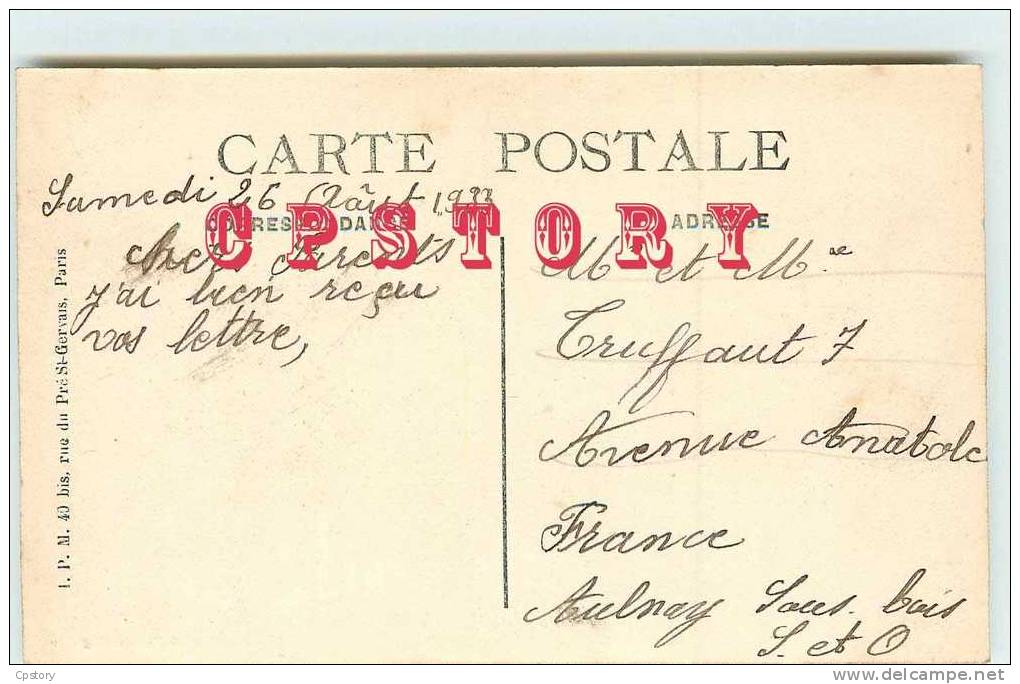 CARTE POSTALE
Samedi 26 Août 1933
CORRESPONDANCE
ADRESSE
CPSTORY
Chers Parents
j'ai bien reçu
vos lettre,
Mr et Mme
Truffaut 7
Avenue Anatole
France
Aulnay Sous-bois
S. et O
I. P. M. 40 bis, rue du Pré St-Gervais, Paris
Cpstory
www.delcampe.net